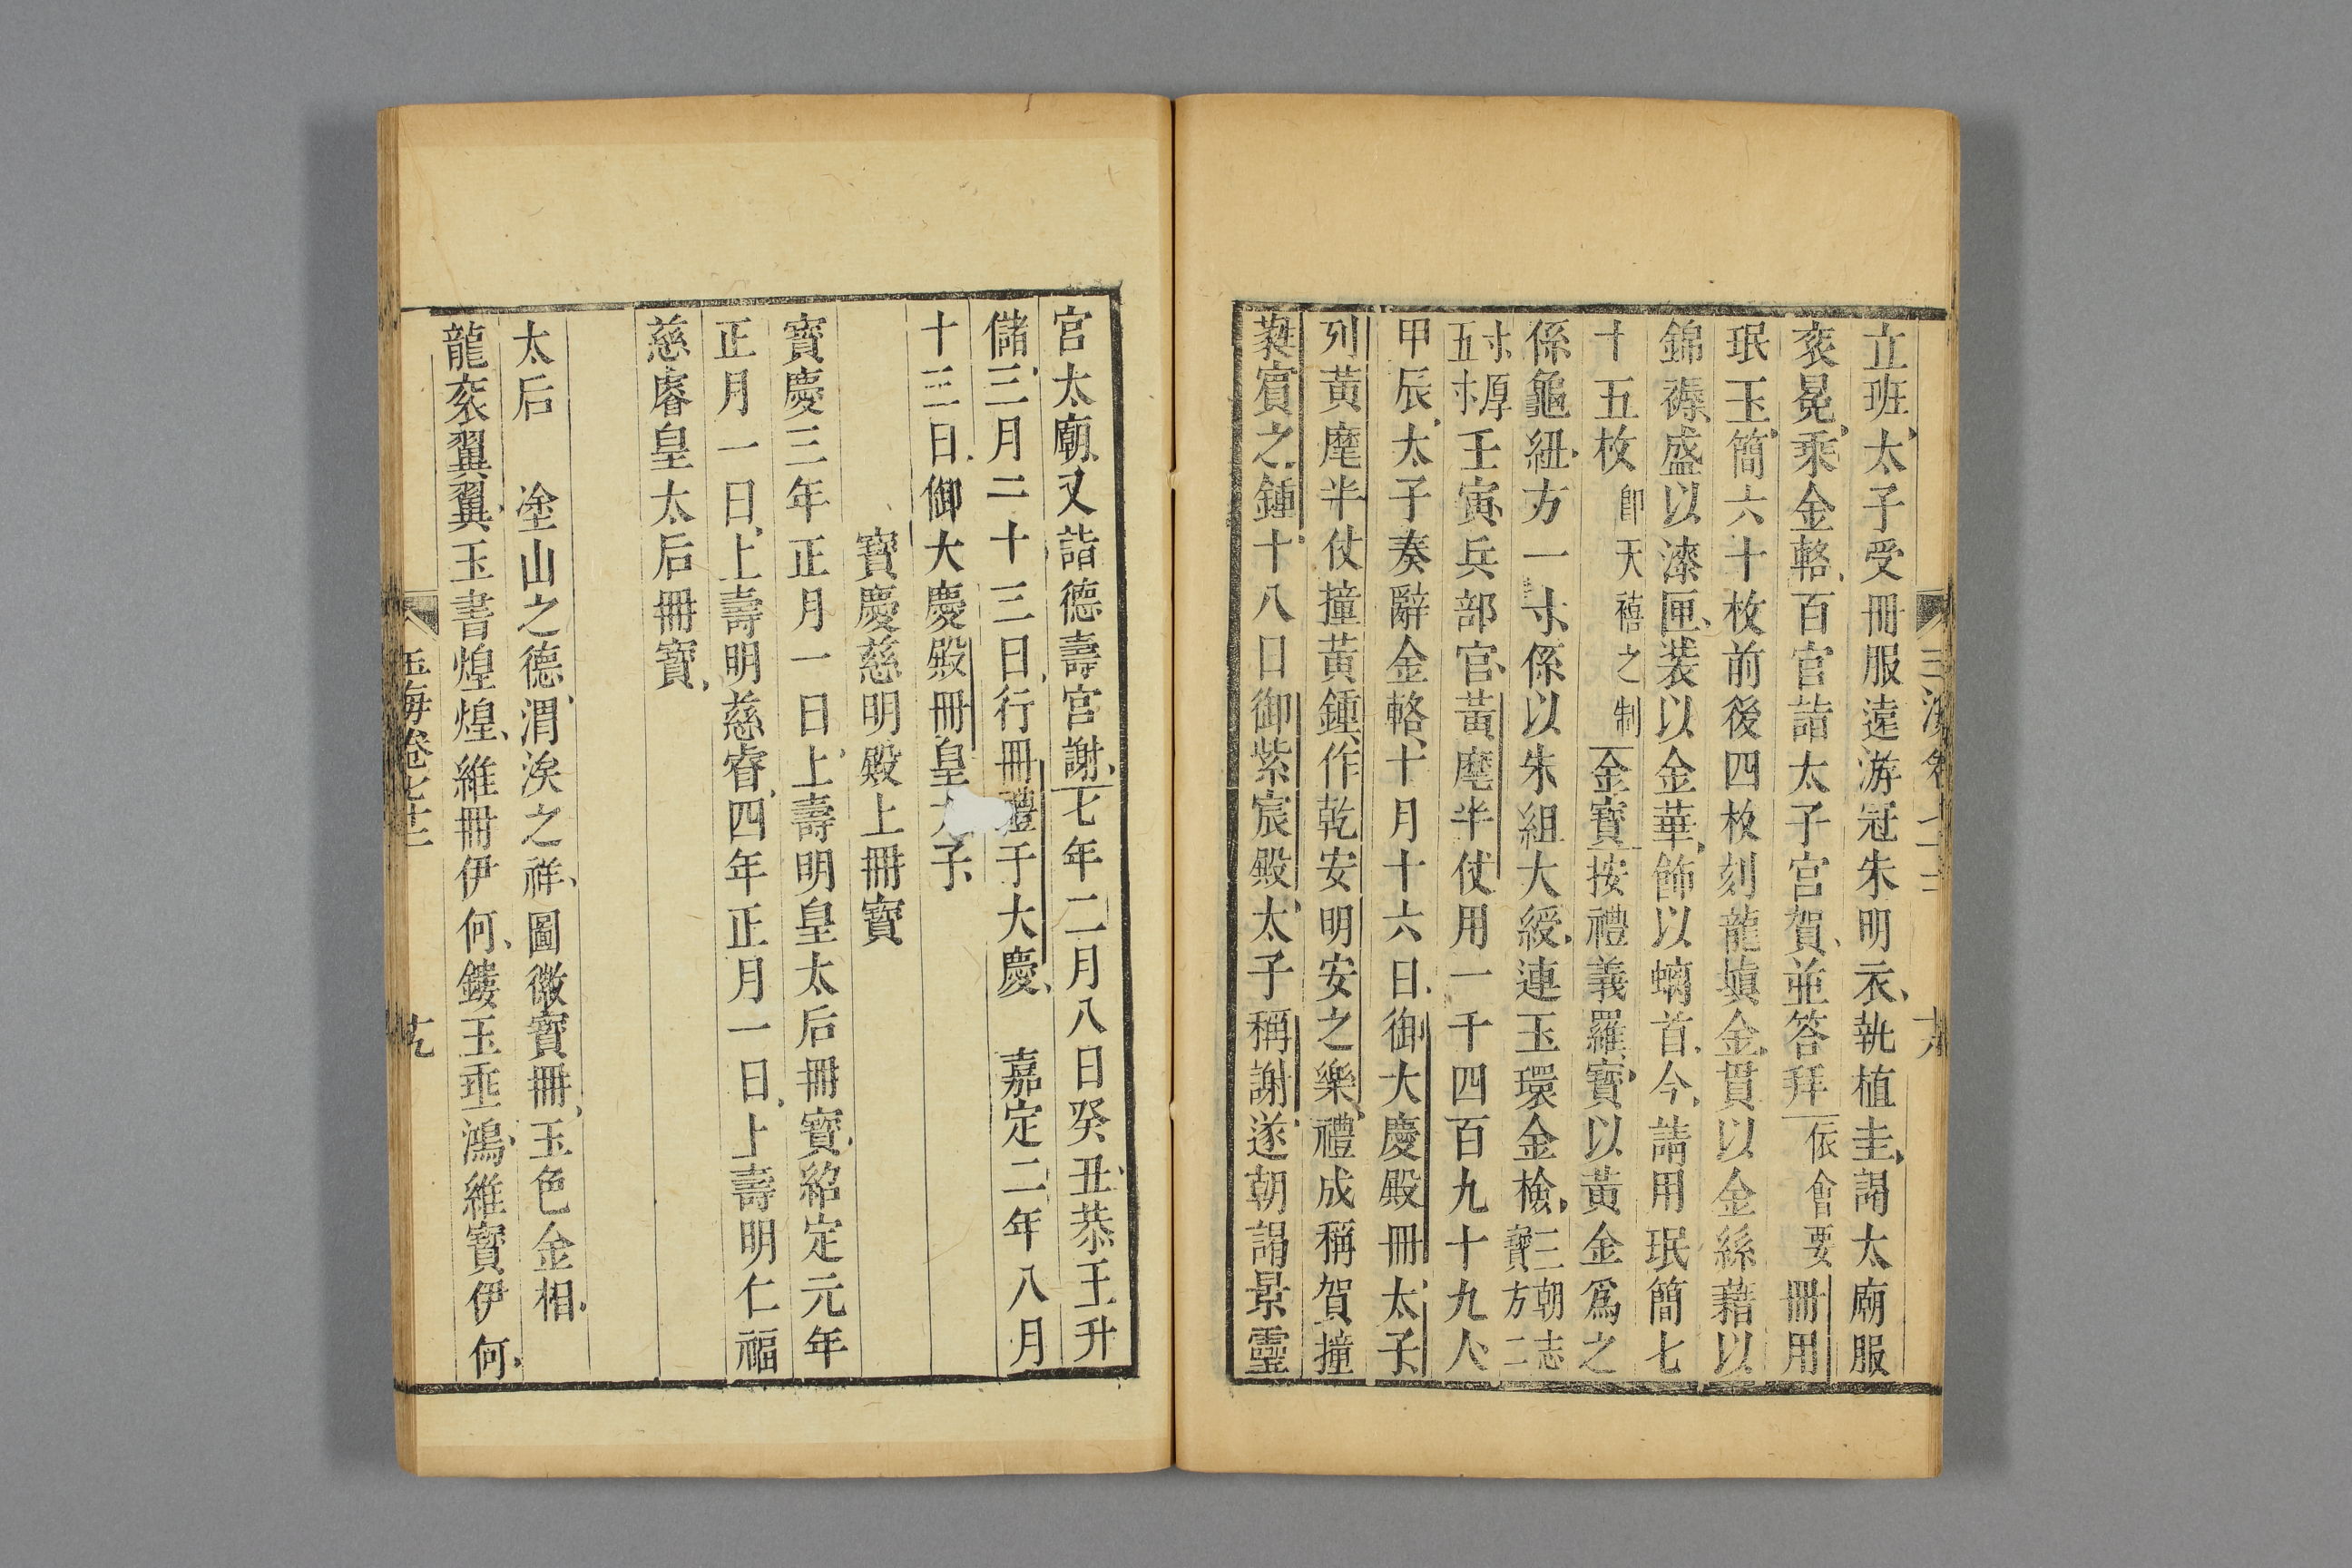 立班太子受冊服遠游冠朱明衣執植圭謁太廟服
衮冕乘金輅百官詣太子宮賀並答拜依會要冊用
珉玉簡六十枚前後四枚刻龍塡金貫以金絲藉以
錦褥盛以漆匣裝以金華飾以螭首今請用珉簡七
十五枚卽天禧之制金寶按禮義羅寶以黃金爲之
係龜紐方一寸係以朱組大綬連玉環金檢三朝志寶方二
寸厚五寸壬寅兵部官黃麾半仗用一千四百九十九人
甲辰太子奏辭金輅十月十六日御大慶殿冊太子
列黃麾半仗撞黃鍾作乾安明安之樂禮成稱賀撞
蕤賓之鍾十八日御紫宸殿太子稱謝遂朝謁景靈
宮太廟又詣德壽宮謝七年二月八日癸丑恭王升
儲三月二十三日行冊禮于大慶 嘉定二年八月
十三日御大慶殿冊皇太子
寶慶慈明殿上冊寶
寶慶三年正月一日上壽明皇太后冊寶紹定元年
正月一日上壽明慈睿四年正月一日上壽明仁福
慈睿皇太后冊寶
太后 塗山之德渭涘之祥圖徽寶冊玉色金相
龍衮翼翼玉書煌煌維冊伊何鏤玉垂鴻維寶伊何
玉海卷七十三 十九